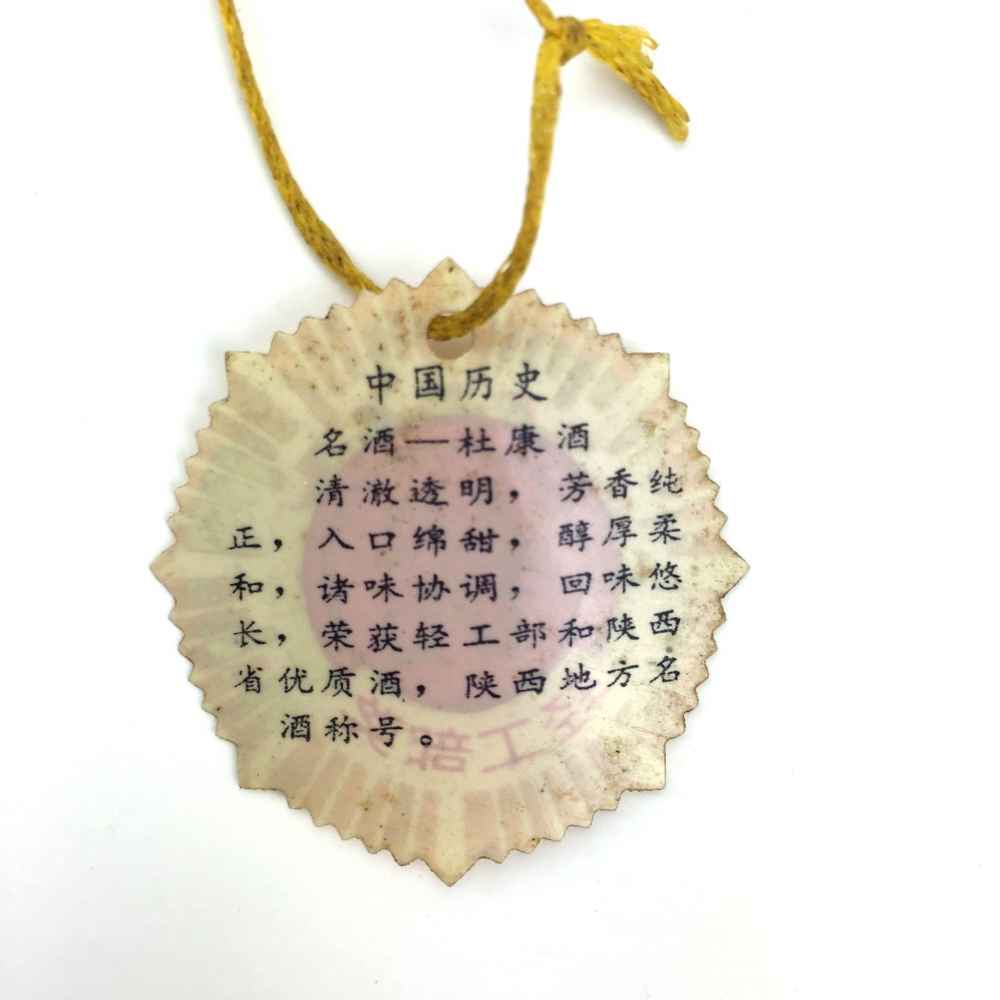 中国历史
名酒—杜康酒
清澈透明，芳香纯
正，入口绵甜，醇厚柔
和，诸味协调，回味悠
长，荣获轻工部和陕西
省优质酒，陕西地方名
酒称号。